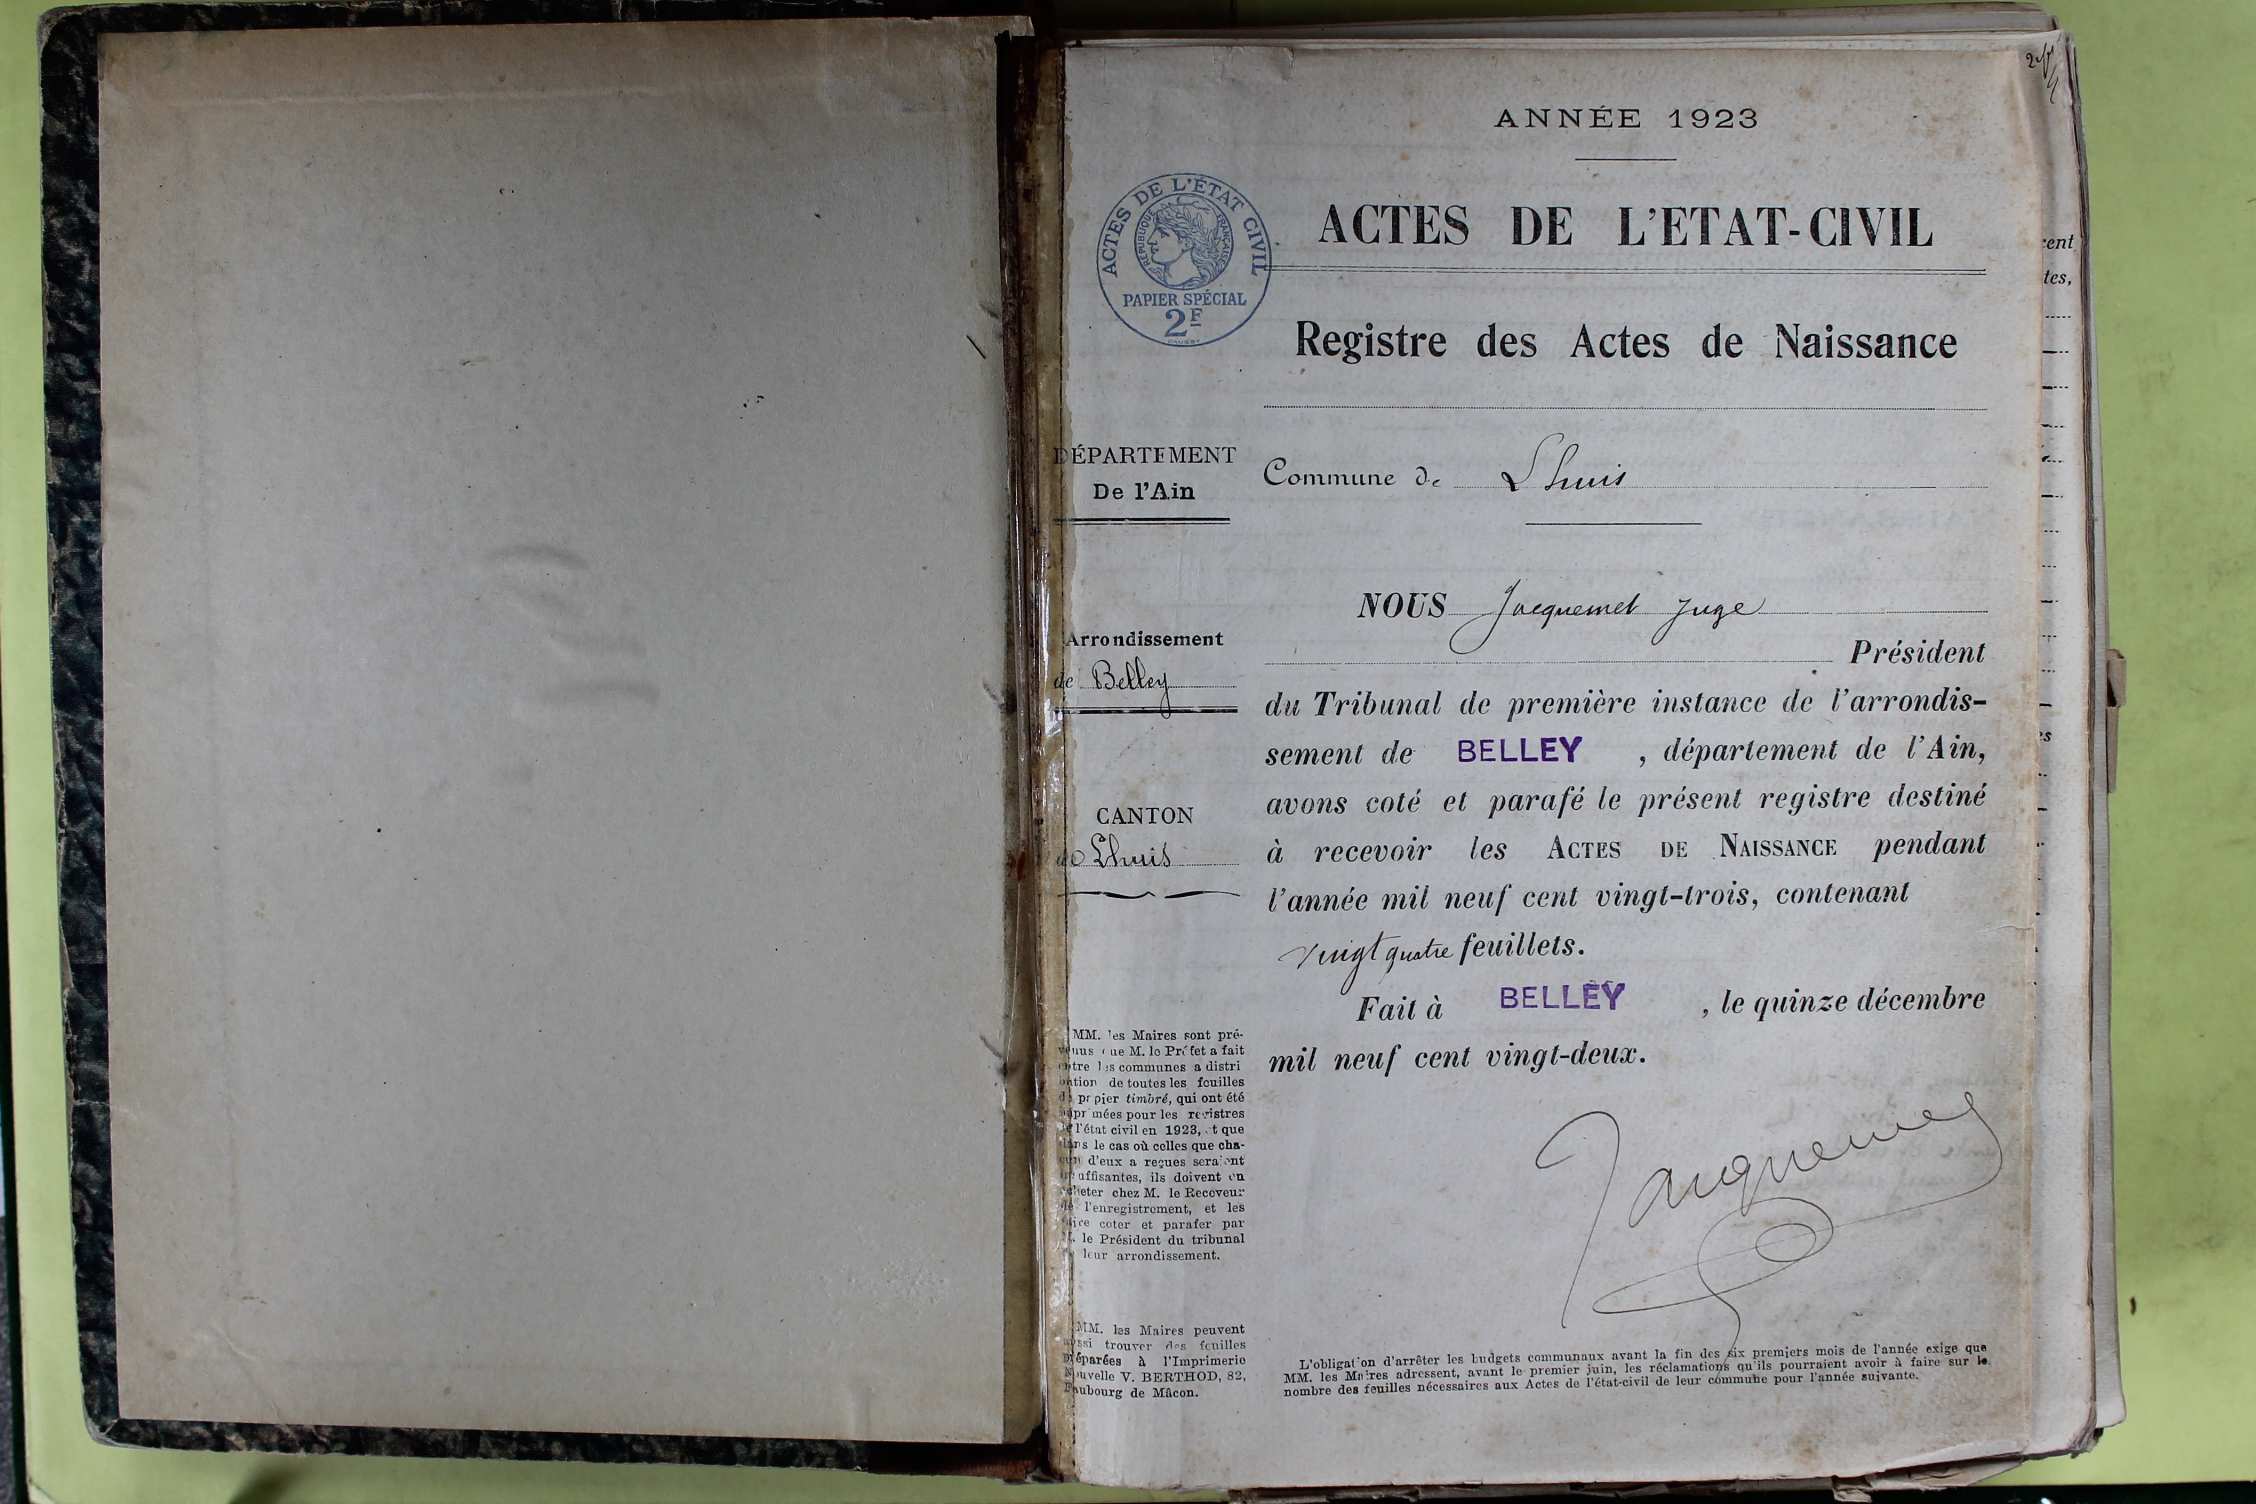 ANNÉE 1923
ACTES DE L'ÉTAT CIVIL
RÉPUBLIQUE FRANÇAISE
PAPIER SPÉCIAL
2F
ACTES DE L'ETAT-CIVIL
Registre des Actes de Naissance
DÉPARTEMENT
De l'Ain
Commune de Lhuis
Arrondissement
de Belley
CANTON
de Lhuis
NOUS Jacquemet Juge
Président
du Tribunal de première instance de l'arrondis-
sement de BELLEY , département de l'Ain,
avons coté et parafé le présent registre destiné
à recevoir les ACTES DE NAISSANCE pendant
l'année mil neuf cent vingt-trois, contenant
vingt quatre feuillets.
Fait à BELLEY , le quinze décembre
mil neuf cent vingt-deux.
Jacquemet
MM. les Maires sont pré-
venus que M. le Préfet a fait
entre les communes a distri
bution de toutes les feuilles
de papier timbré, qui ont été
imprimées pour les registres
de l'état civil en 1923, et que
dans le cas où celles que cha-
cun d'eux a reçues seraient
insuffisantes, ils doivent en
acheter chez M. le Receveur
de l'enregistrement, et les
faire coter et parafer par
M. le Président du tribunal
de leur arrondissement.
MM. les Maires peuvent
aussi trouver des feuilles
préparées à l'Imprimerie
Nouvelle V. BERTHOD, 82,
Faubourg de Mâcon.
L'obligation d'arrêter les budgets communaux avant la fin des six premiers mois de l'année exige que
MM. les Maires adressent, avant le premier juin, les réclamations qu'ils pourraient avoir à faire sur le
nombre des feuilles nécessaires aux Actes de l'état-civil de leur commune pour l'année suivante.
ent
tes,